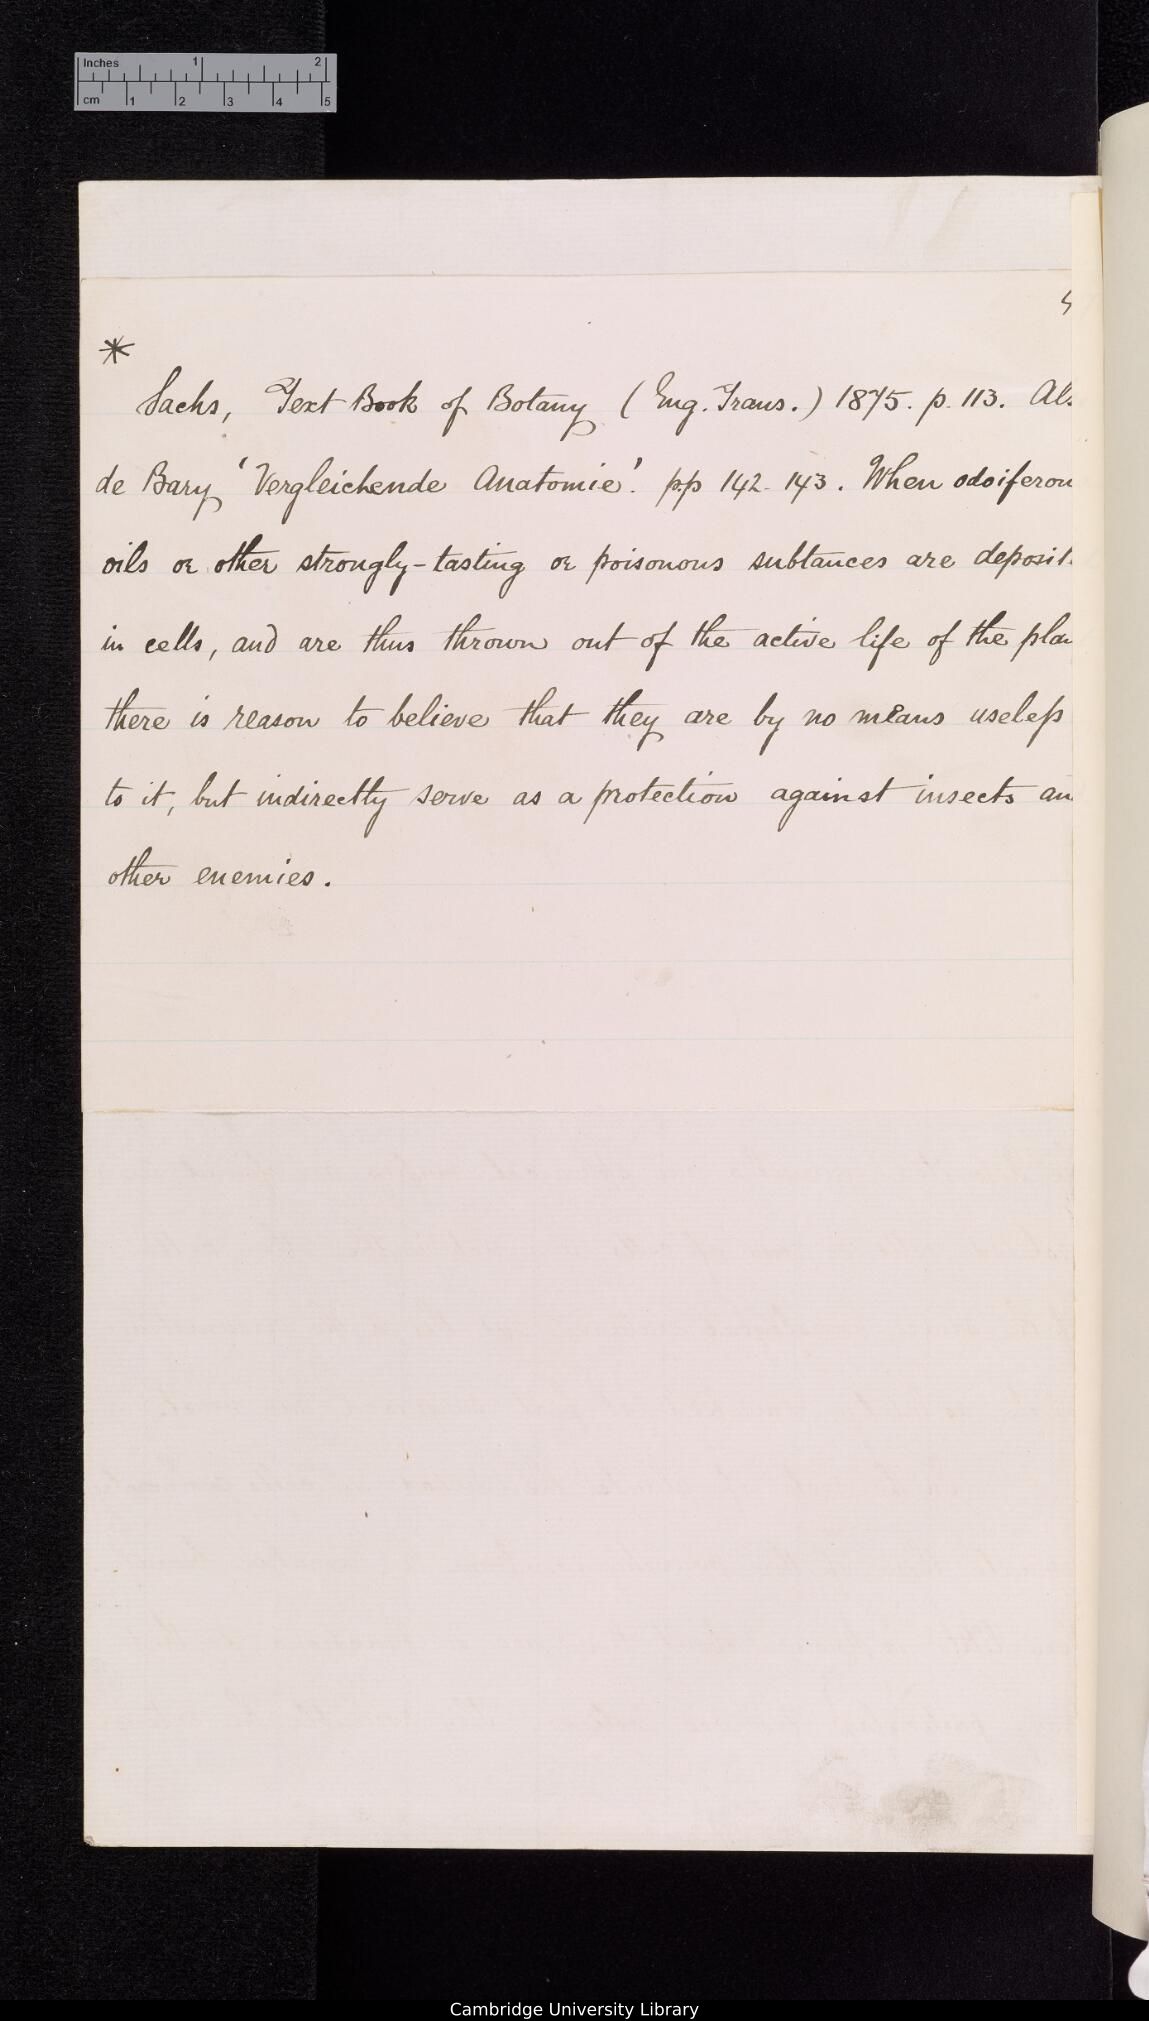 Inches 1 2
cm 1 2 3 4 5
*
Sachs, Text Book of Botany (Eng. Trans.) 1875. p. 113. Als
de Bary 'Vergleichende Anatomie'. pp 142-143. When odoiferou
oils or other strongly-tasting or poisonous subtances are deposit
in cells, and are thus thrown out of the active life of the plan
there is reason to believe that they are by no means useless
to it, but indirectly serve as a protection against insects an
other enemies.
Cambridge University Library